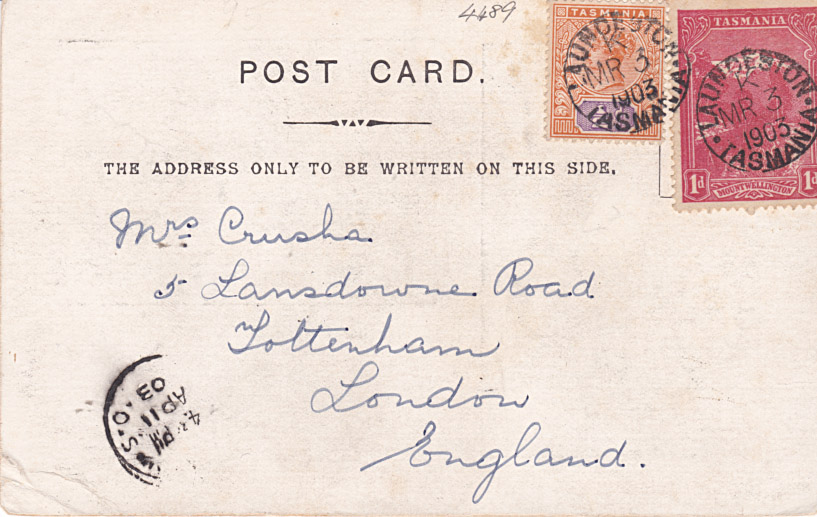 4489
POST CARD.
TASMANIA
LAUNCESTON
K
MR 3
1903
TASMANIA
TASMANIA
LAUNCESTON
K
MR 3
1903
TASMANIA
1d 1d
MOUNT WELLINGTON
THE ADDRESS ONLY TO BE WRITTEN ON THIS SIDE.
Mrs Crusha.
5 Lansdowne Road
Tottenham
London
England.
AP 11
03
S.O.